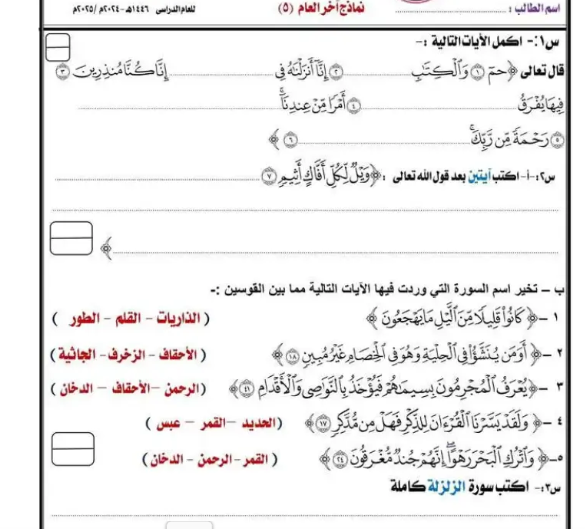 اسم الطالب : ........................ نماذج أخر العام (٥) للعام الدراسي ١٤٤٦هـ-٢٠٢٤م /٢٠٢٥م
س١:- اكمل الآيات التالية :-
قال تعالى ﴿حمٓ ١ وَٱلْكِتَٰبِ ........................ ٢ إِنَّآ أَنزَلْنَٰهُ فِى ........................ إِنَّا كُنَّا مُنذِرِينَ ٣
فِيهَا يُفْرَقُ ........................ ٤ أَمْرًا مِّنْ عِندِنَآ ۚ ........................
٥ رَحْمَةً مِّن رَّبِّكَ ۚ ........................ ٦ ﴾
س٢:-أ- اكتب آيتين بعد قول الله تعالى :﴿وَيْلٌ لِّكُلِّ أَفَّاكٍ أَثِيمٍ ٧ ........................
........................ ﴾
ب – تخير اسم السورة التي وردت فيها الآيات التالية مما بين القوسين :-
١ -﴿ كَانُوا۟ قَلِيلًا مِّنَ ٱلَّيْلِ مَا يَهْجَعُونَ ﴾ ( الذاريات - القلم - الطور )
٢ -﴿ أَوَمَن يُنَشَّؤُا۟ فِى ٱلْحِلْيَةِ وَهُوَ فِى ٱلْخِصَامِ غَيْرُ مُبِينٍ ١٨ ﴾ (الأحقاف - الزخرف- الجاثية )
٣ -﴿يُعْرَفُ ٱلْمُجْرِمُونَ بِسِيمَٰهُمْ فَيُؤْخَذُ بِٱلنَّوَٰصِى وَٱلْأَقْدَامِ ٤١ ﴾ (الرحمن –الأحقاف – الدخان )
٤ -﴿ وَلَقَدْ يَسَّرْنَا ٱلْقُرْءَانَ لِلذِّكْرِ فَهَلْ مِن مُّدَّكِرٍ ١٧ ﴾ (الحديد –القمر – عبس )
٥-﴿ وَٱتْرُكِ ٱلْبَحْرَ رَهْوًا ۖ إِنَّهُمْ جُندٌ مُّغْرَقُونَ ٢٤ ﴾ ( القمر -الرحمن - الدخان)
س٣:- اكتب سورة الزلزلة كاملة